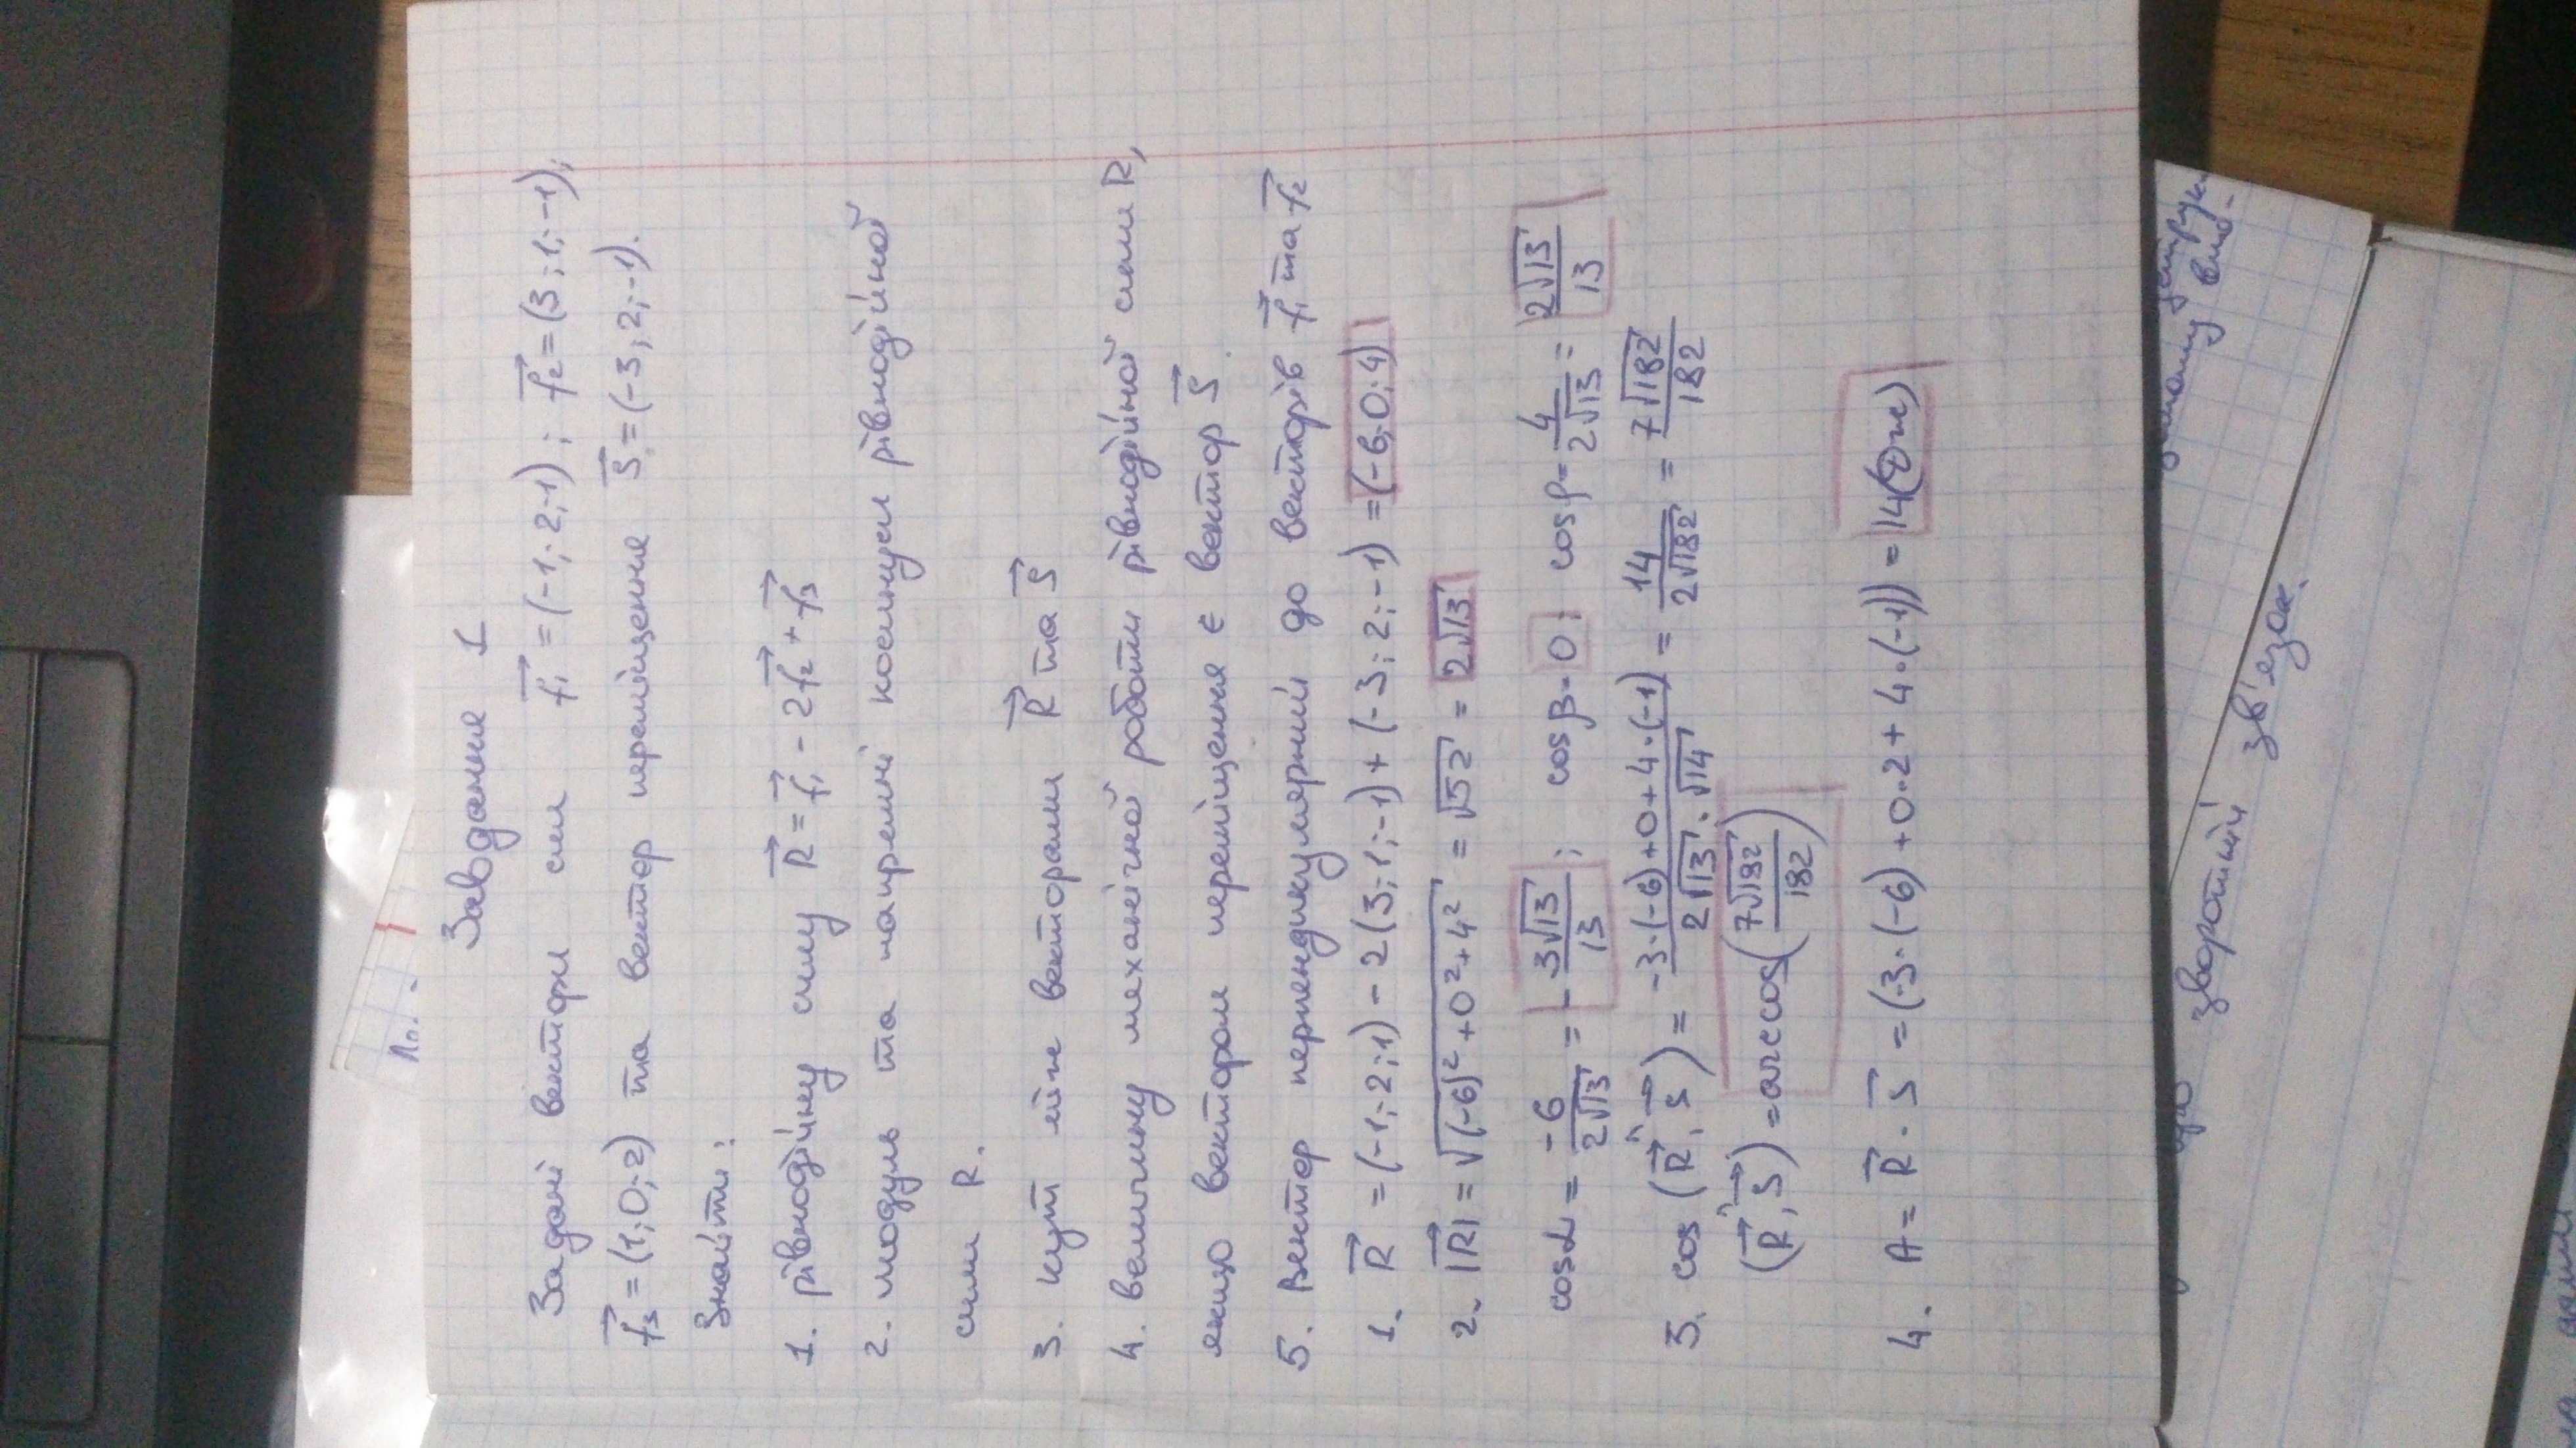 Завдання 1
Задані вектори сил f₁ = (-1; 2; 1); f₂ = (3; 1; -1);
f₃ = (1; 0; 2) та вектор переміщення S = (-3; 2; -1).
Знайти:
1. рівнодійну силу R = f₁ - 2f₂ + f₃
2. модуль та напремні косинуси рівнодійної
сили R.
3. кут між векторами R та S
4. величину механічної роботи рівнодійної сили R,
якщо вектором переміщення є вектор S.
5. Вектор перпендикулярний до векторів f₁ та f₂
1. R = (-1; 2; 1) - 2(3; 1; -1) + (-3; 2; -1) = (-6; 0; 4)
2. |R| = √((-6)² + 0² + 4²) = √52 = 2√13
cos α = -6/(2√13) = -3√13/13; cos β = 0; cos ρ = 4/(2√13) = 2√13/13
3. cos (R, S) = (-3·(-6) + 0 + 4·(-1))/(2√13 · √14) = 14/(2√182) = 7√182/182
(R, S) = arccos(7√182/182)
4. A = R · S = (-3·(-6) + 0·2 + 4·(-1)) = 14 (Дж)
зворотній зв'язок.